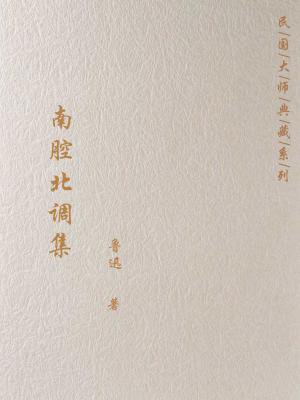 民|国|大|师|典|藏|系|列
南腔北调集
鲁迅 著